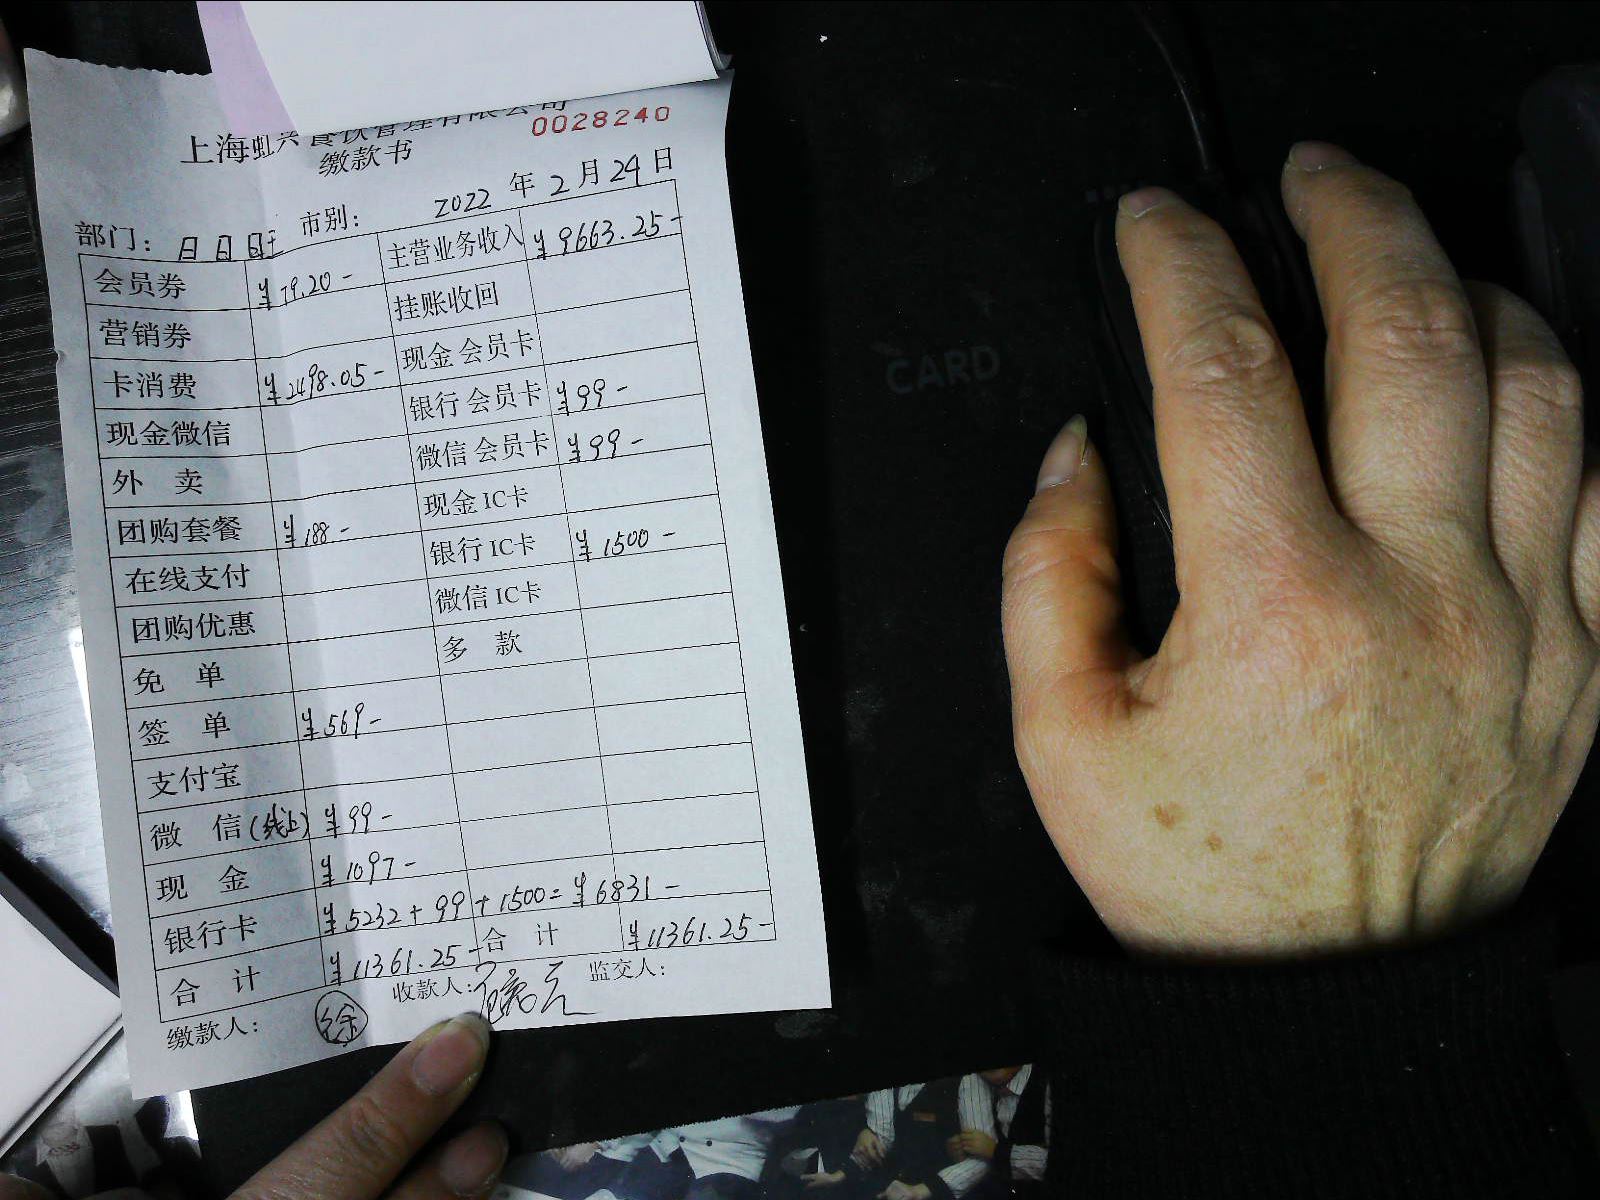 上海虹兴餐饮管理有限公司
0028240
缴款书
2022 年 2 月 24 日
部门: 日日旺 市别:
会员券 ¥79.20- 主营业务收入 ¥9663.25-
营销券 挂账收回
卡消费 ¥2498.05- 现金会员卡
现金微信 银行会员卡 ¥99-
外 卖 微信会员卡 ¥99-
团购套餐 ¥188- 现金IC卡
在线支付 银行IC卡 ¥1500-
团购优惠 微信IC卡
免 单 多 款
签 单 ¥569-
支付宝
微 信(线上) ¥99-
现 金 ¥1097-
银行卡 ¥5232+99+1500=¥6831-
合 计 ¥11361.25- 合 计 ¥11361.25-
缴款人: 徐 收款人: 监交人:
CARD